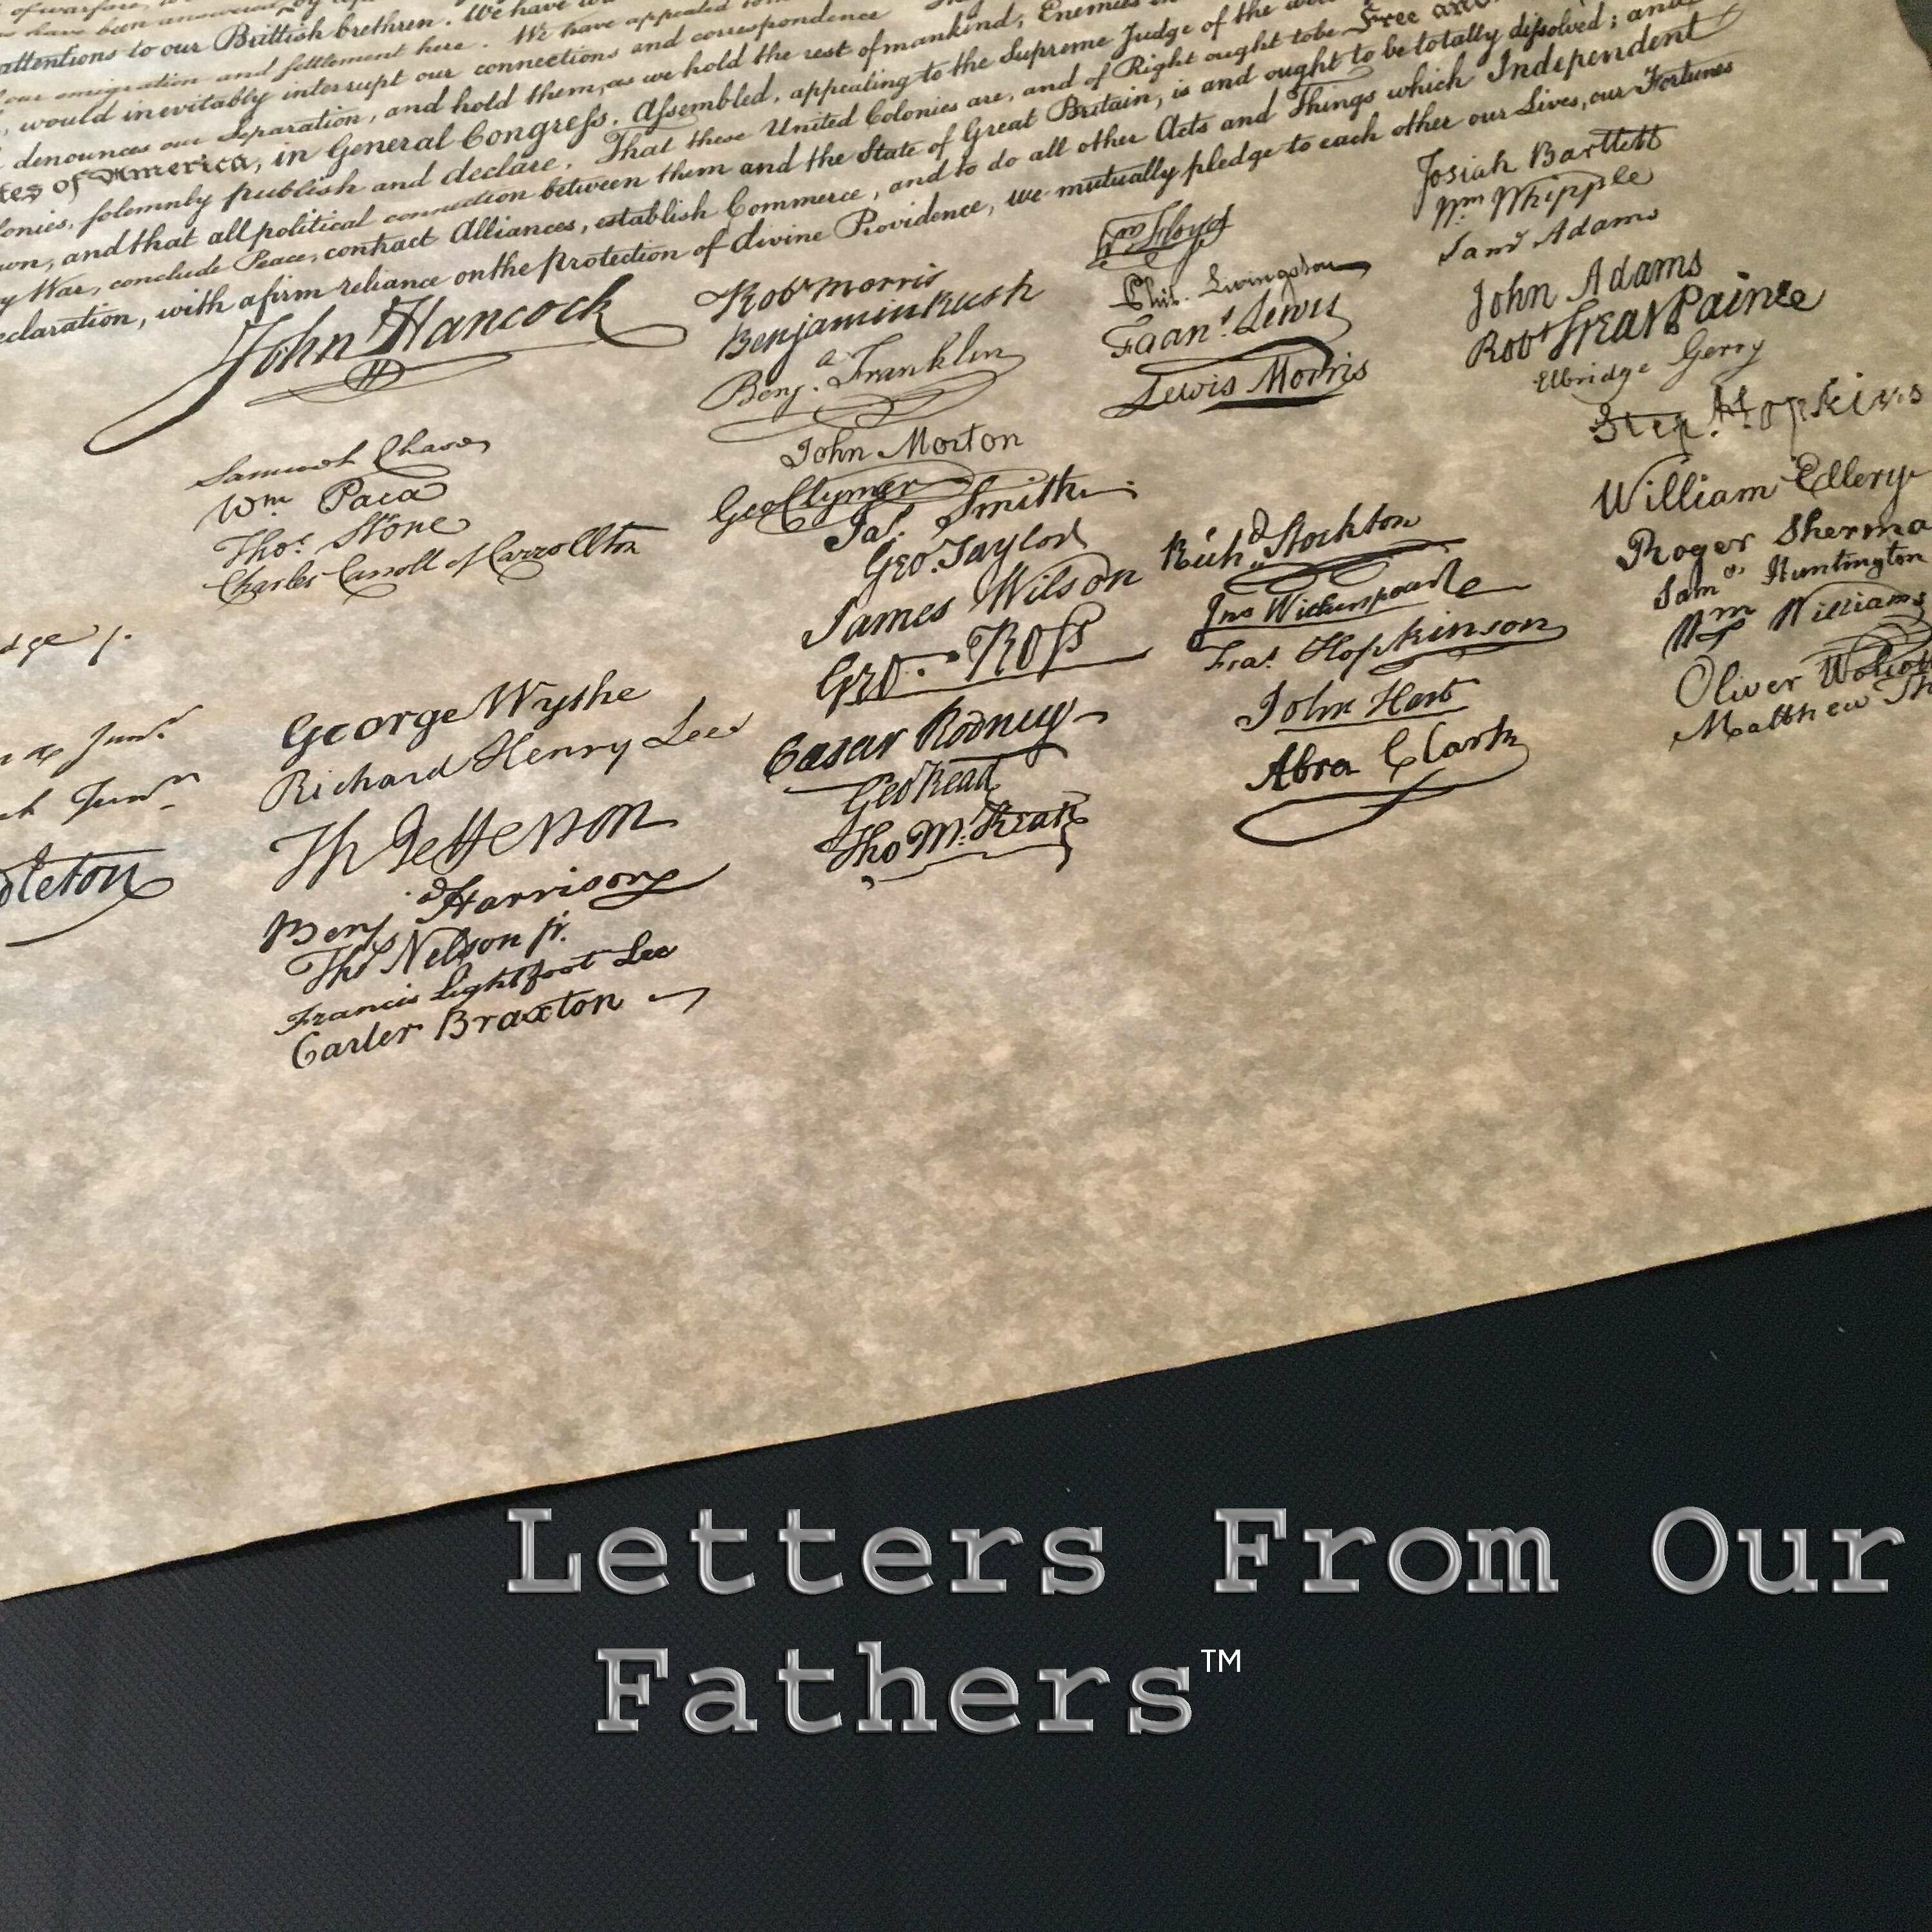 of warfare,
have been answered by
attentions to our Brittish brethren. We have
our emigration and settlement here. We have appealed to
, would inevitably interrupt our connections and correspondence
denounces our Separation, and hold them, as we hold the rest of mankind, Enemies in
tes of America, in General Congress, Assembled, appealing to the Supreme Judge of the
lonies, solemnly publish and declare, That these United Colonies are, and of Right ought to be Free and
own, and that all political connection between them and the State of Great Britain, is and ought to be totally dissolved; and
y War, conclude Peace, contract Alliances, establish Commerce, and to do all other Acts and Things which Independent
eclaration, with a firm reliance on the protection of divine Providence, we mutually pledge to each other our Lives, our Fortunes
John Hancock
Samuel Chase
Wm Paca
Thos. Stone
Charles Carroll of Carrollton
George Wythe
Richard Henry Lee
Th Jefferson
Benj Harrison
Thos Nelson jr.
Francis Lightfoot Lee
Carter Braxton
Robt Morris
Benjamin Rush
Benja. Franklin
John Morton
Geo Clymer
Jas. Smith
Geo. Taylor
James Wilson
Geo. Ross
Caesar Rodney
Geo Read
Tho M:Kean
Wm Floyd
Phil. Livingston
Frans. Lewis
Lewis Morris
Richd. Stockton
Jno Witherspoon
Fras. Hopkinson
John Hart
Abra Clark
Josiah Bartlett
Wm Whipple
Saml Adams
John Adams
Robt Treat Paine
Elbridge Gerry
Step. Hopkins
William Ellery
Roger Sherma
Saml Huntington
Wm Williams
Oliver Wolcott
Matthew Th
Letters From Our
Fathers™